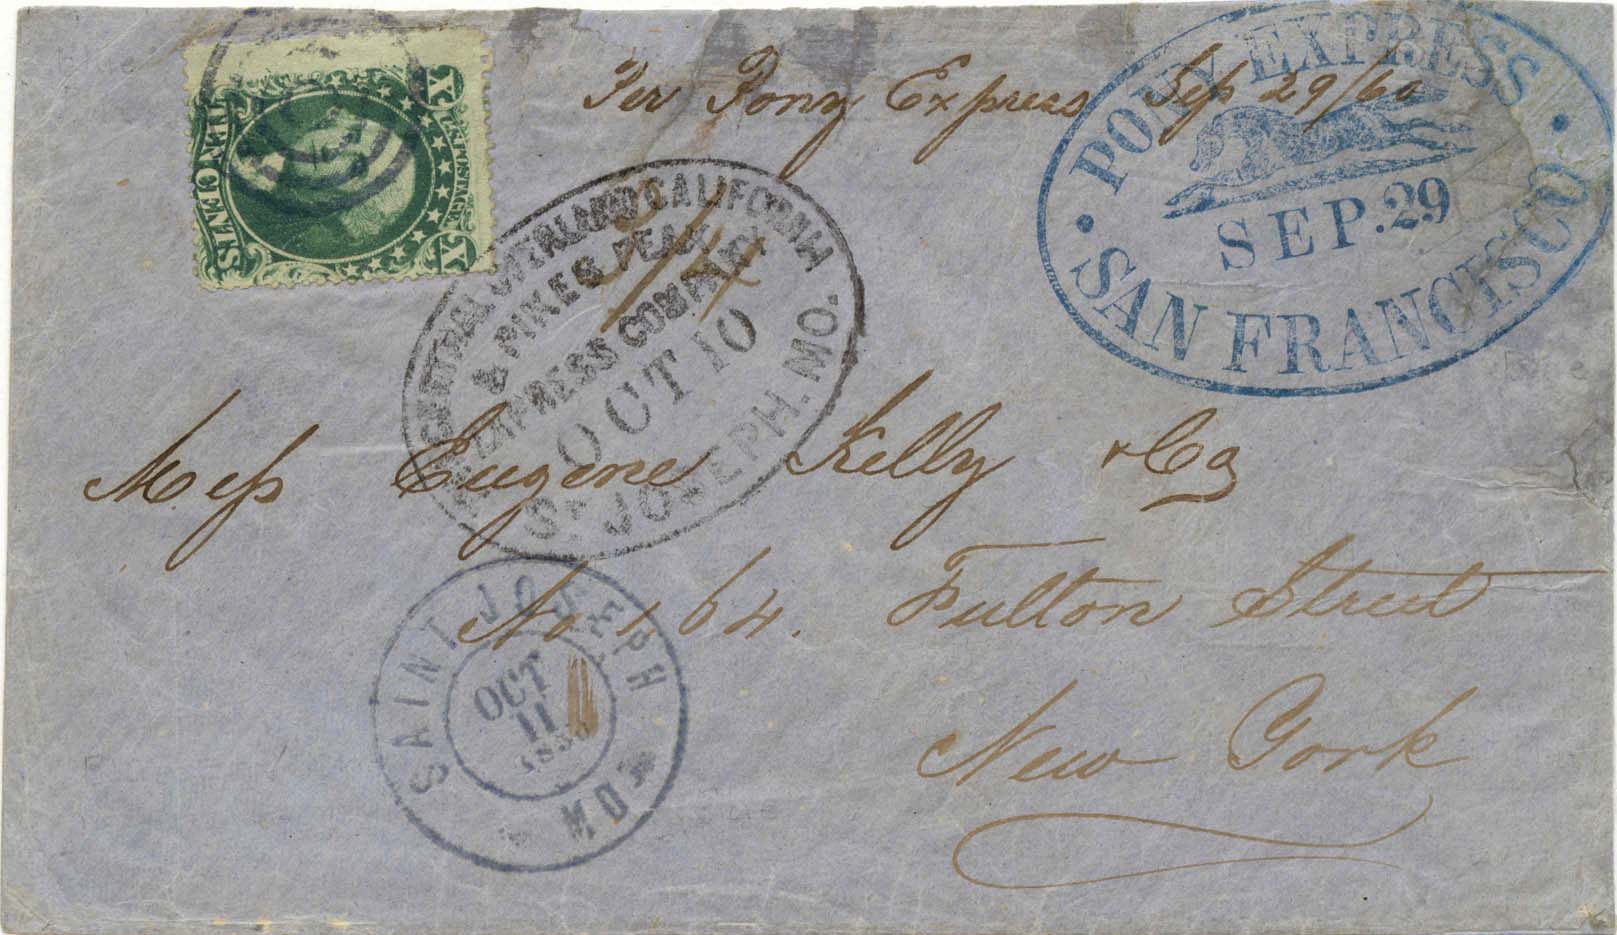 Per Pony Express Sep 29/60
PONY EXPRESS
SEP. 29
SAN FRANCISCO
U.S. POSTAGE
TEN CENTS
X X
CENTRAL OVERLAND CALIFORNIA
& PIKES PEAK
EXPRESS COMPANY
OCT 10
ST JOSEPH. MO.
Mess Eugene Kelly & Co
No 164. Fulton Street
New York
SAINT JOSEPH
OCT
11
MO